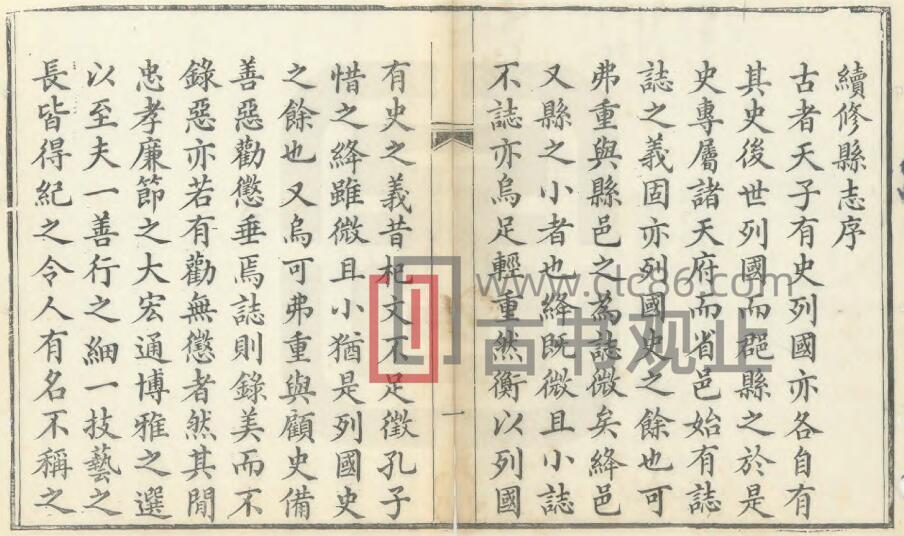 續修縣志序
古者天子有史列國亦各自有
其史後世列國而郡縣之於是
史專屬諸天府而省邑始有誌
誌之義固亦列國史之餘也可
弗重與縣邑之為誌微矣絳邑
又縣之小者也絳既微且小誌
不誌亦烏足輕重然衡以列國
一
有史之義昔杞文不足徵孔子
惜之絳雖微且小猶是列國史
之餘也又烏可弗重與顧史備
善惡勸懲垂焉誌則錄美而不
錄惡亦若有勸無懲者然其間
忠孝廉節之大宏通博雅之選
以至夫一善行之細一技藝之
長皆得紀之令人有名不稱之
www.ctc86.com
古书观止